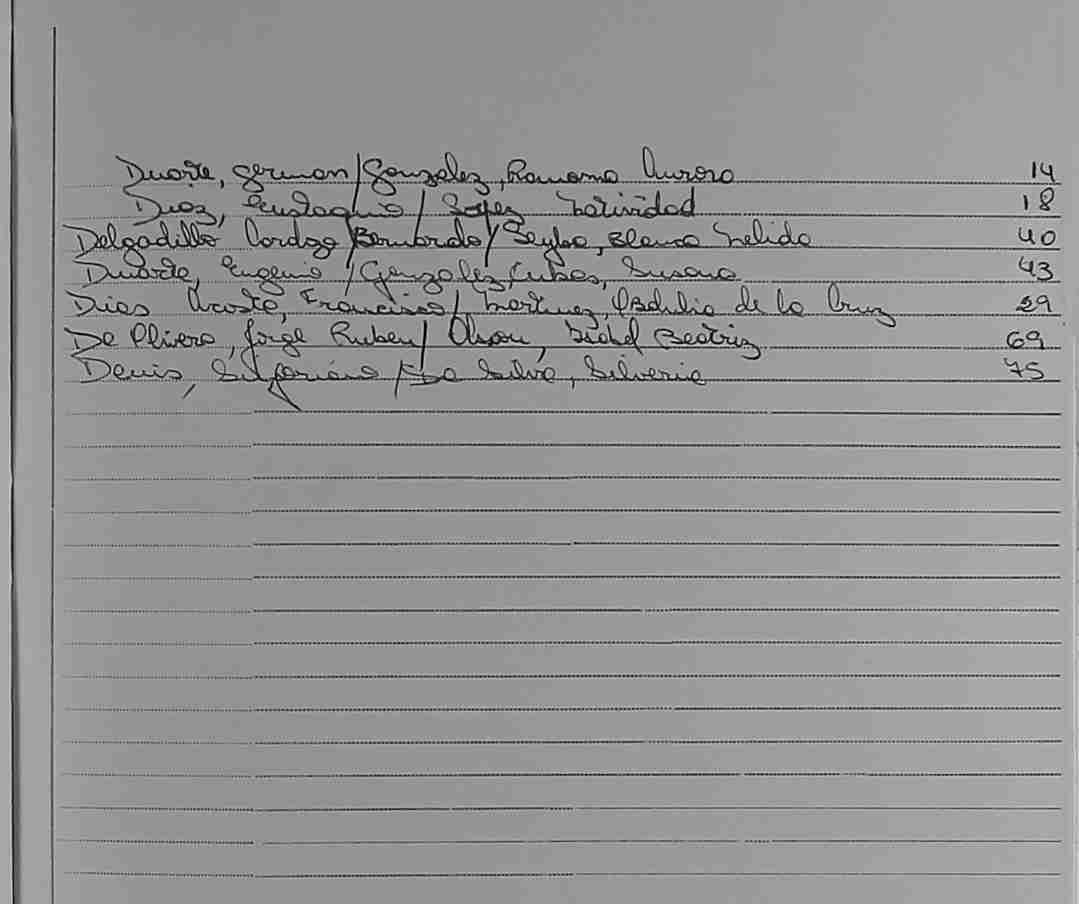 Duarte, German / Gonzalez, Ramona Aurora 14
Diaz, Eustaquio / Lopez Natividad 18
Delgadillo Cardozo Bernardo / Leyba, Blanca Nelida 40
Duarte, Eugenio / Gonzalez Cubas, Susana 43
Dias Acosta, Francisco / Martinez, Obdulia de la Cruz 29
De Olivera, Jorge Ruben / Isabel Beatriz 69
Denis, Silforiano / Da Silva, Silveria 75